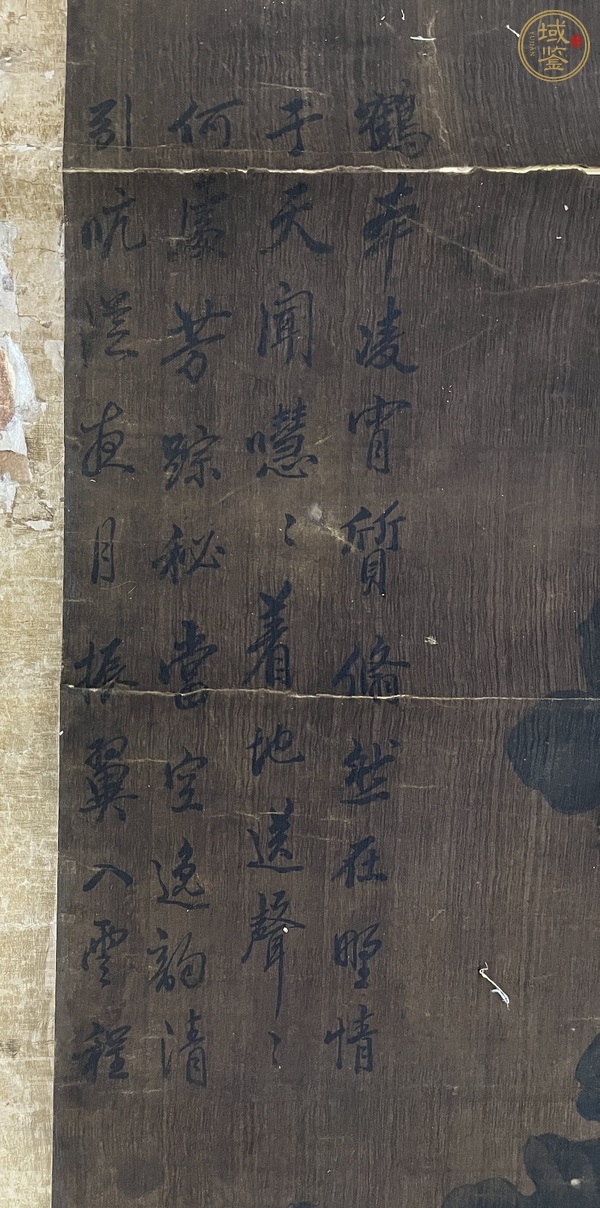 鶴本凌宵質脩然在野情
于天聞嘒〻着地送聲〻
何處芳踪秘當空逸韵清
引吭從夜月振翼入雲程
域鉴
YUJIAN